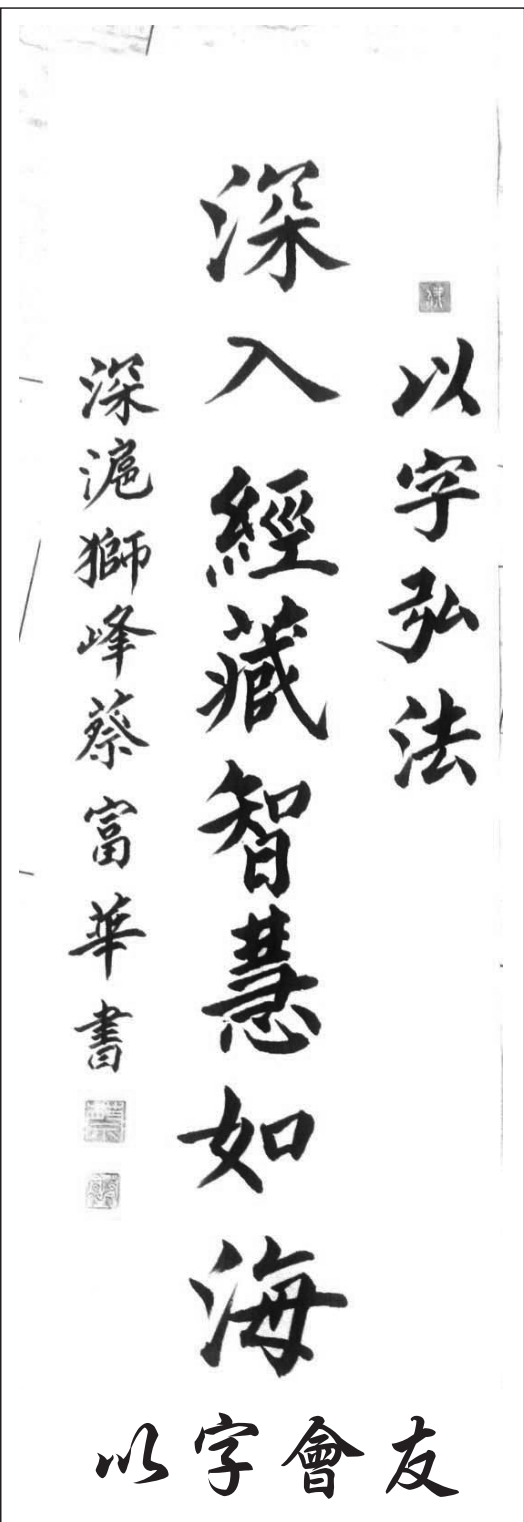 以字弘法
深入經藏智慧如海
深滬獅峰蔡富華書
以字會友